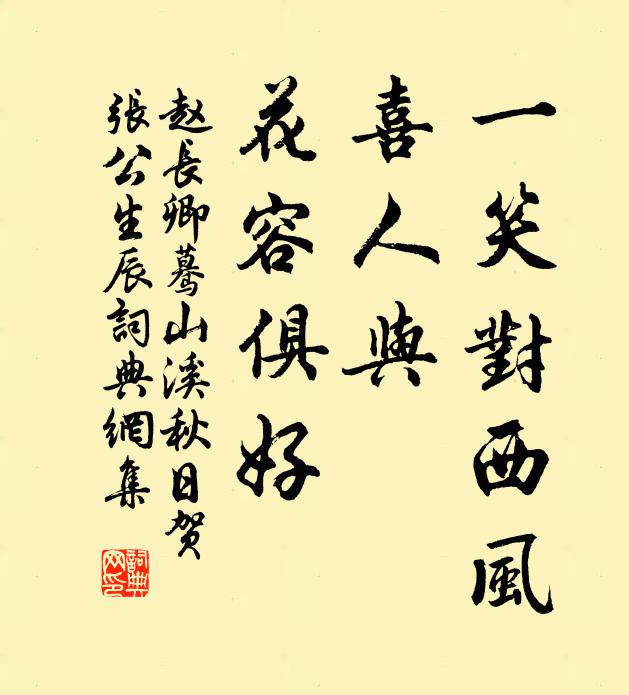 一笑對西風
喜人與
花容俱好
赵長卿驀山溪秋日贺
張公生辰詞典網集
詞典
网印